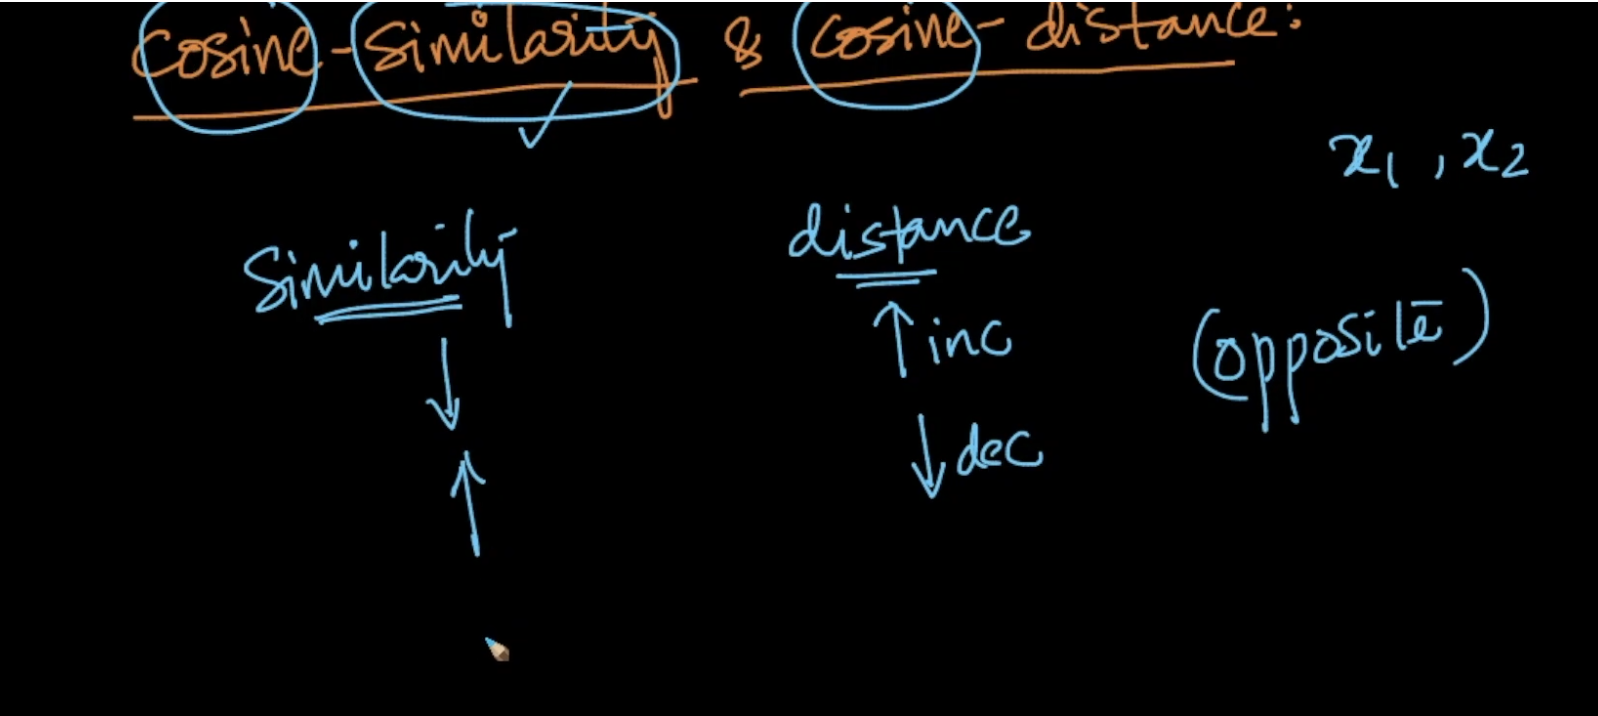 Cosine-Similarity & Cosine-distance:
x1, x2
Similarity distance
↑ inc (opposite)
↓ ↓ dec
↑